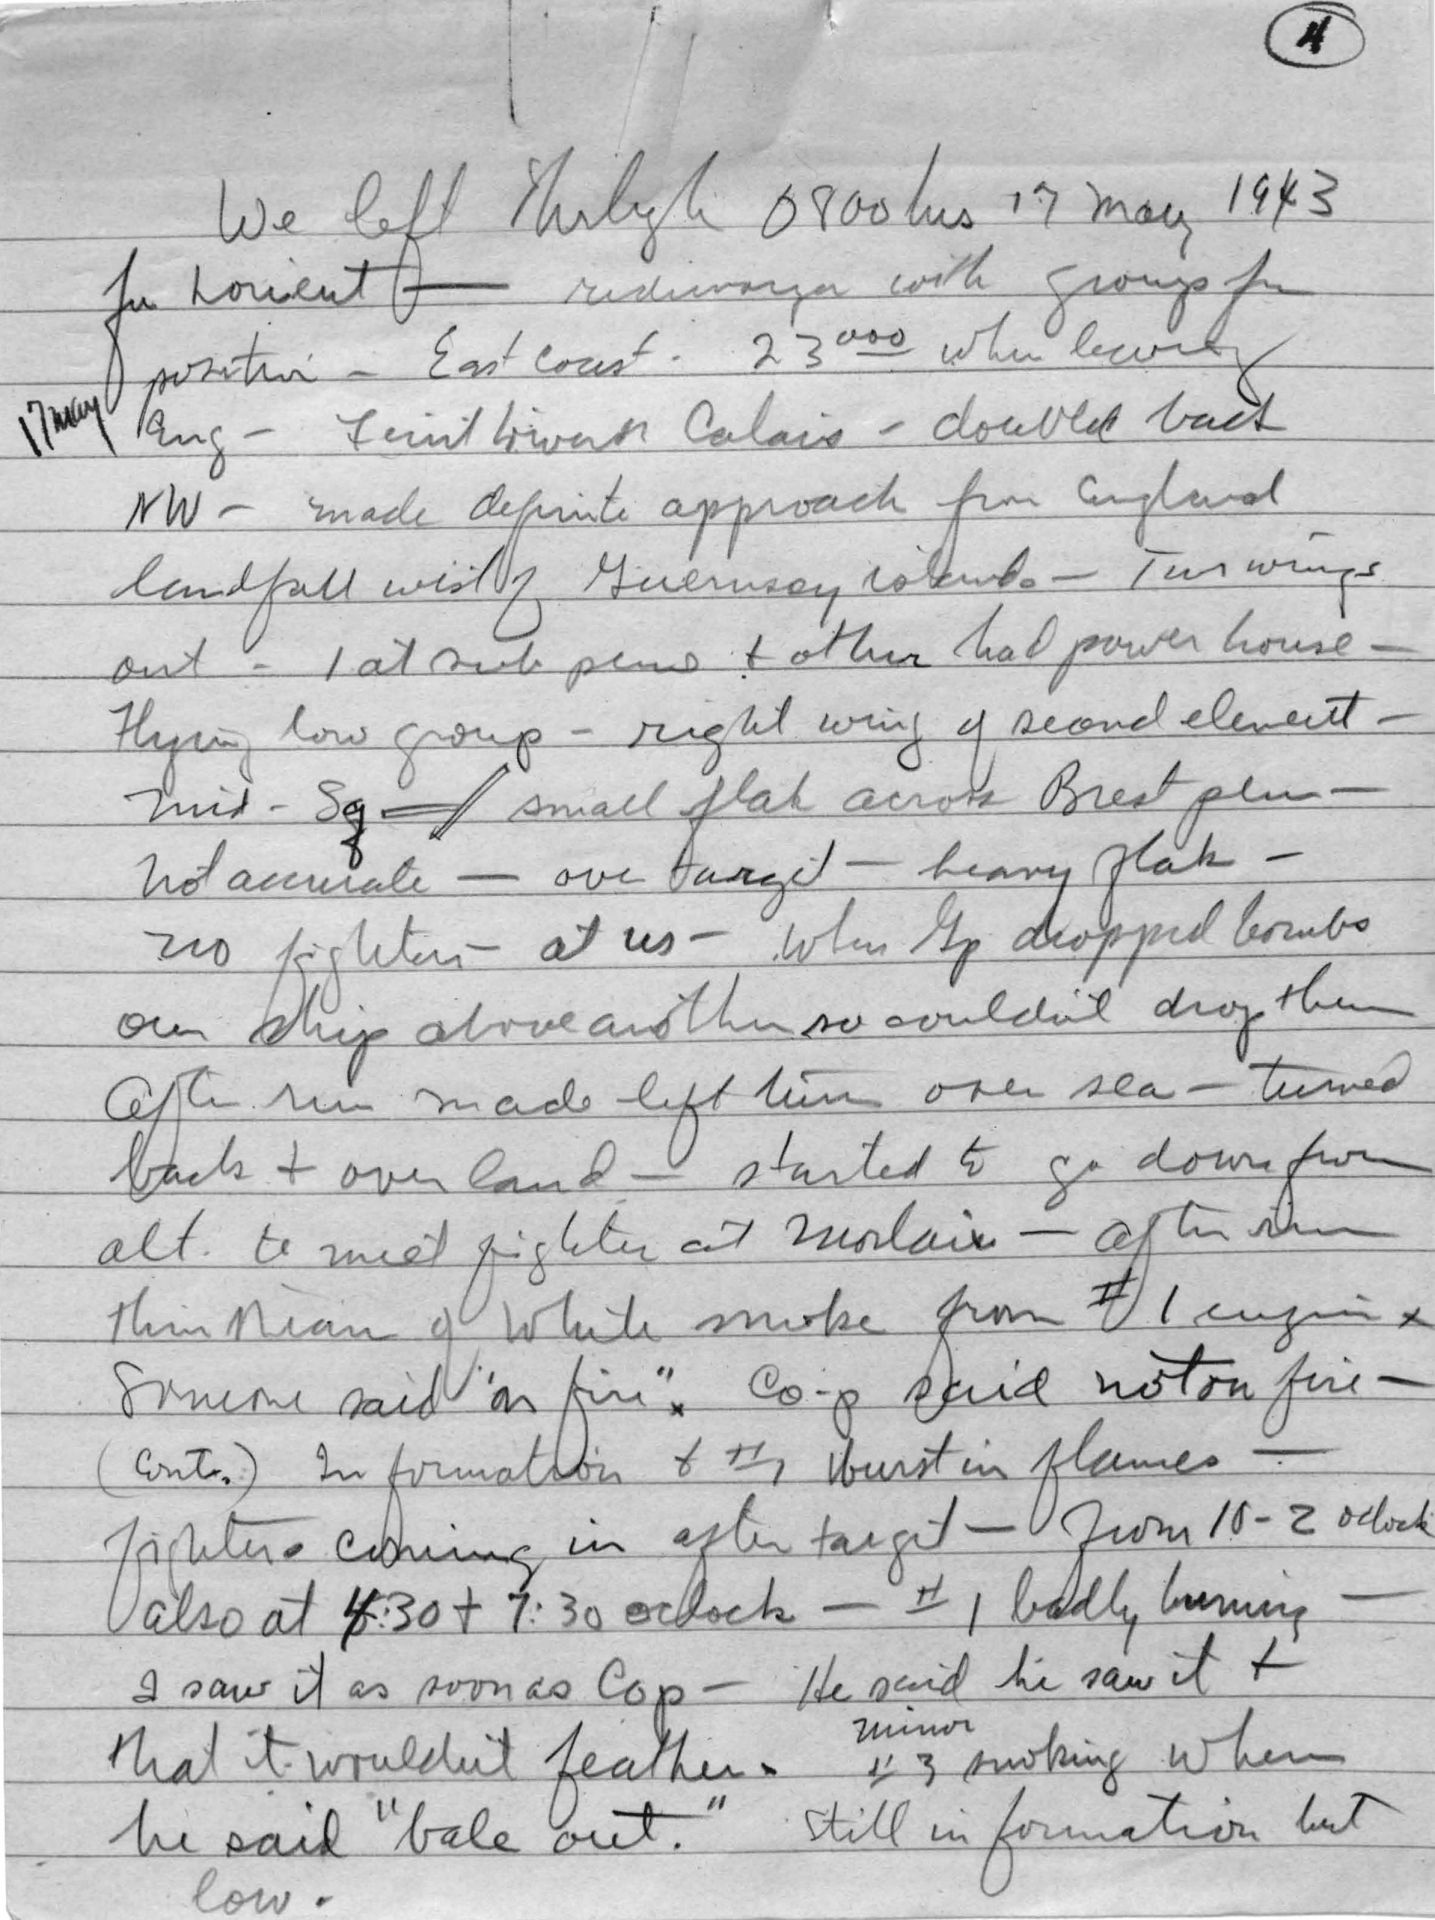 4
We left Thurleigh 0800 hrs 17 May 1943
for Lorient — rendezvous with groups for
position - East Coast - 23000 when leaving
17 May
Eng - Feint toward Calais - doubled back
NW - made definite approach from England
landfall west of Guernsey islands - Two wings
out - 1 at sub pens + other had power house -
Flying low group - right wing of second element -
mid - Sq small flak across Brest pen -
not accurate — over target — heavy flak -
no fighters - at us - When Gp dropped bombs
our ship above another so couldn't drop them
After run made left turn over sea - turned
back + over land - started to go down from
alt. to meet fighter at Morlaix - After run
thin stream of white smoke from #1 engine x
Someone said "on fire". x Co-p said not on fire -
(Cont.) In formation + #1 burst in flames -
fighters coming in after target - from 10-2 oclock
also at 4:30 + 7:30 oclock - #1 badly burning -
I saw it as soon as Cop - He said he saw it +
that it wouldn't feather. minor #3 smoking when
he said "bale out." Still in formation but
low.